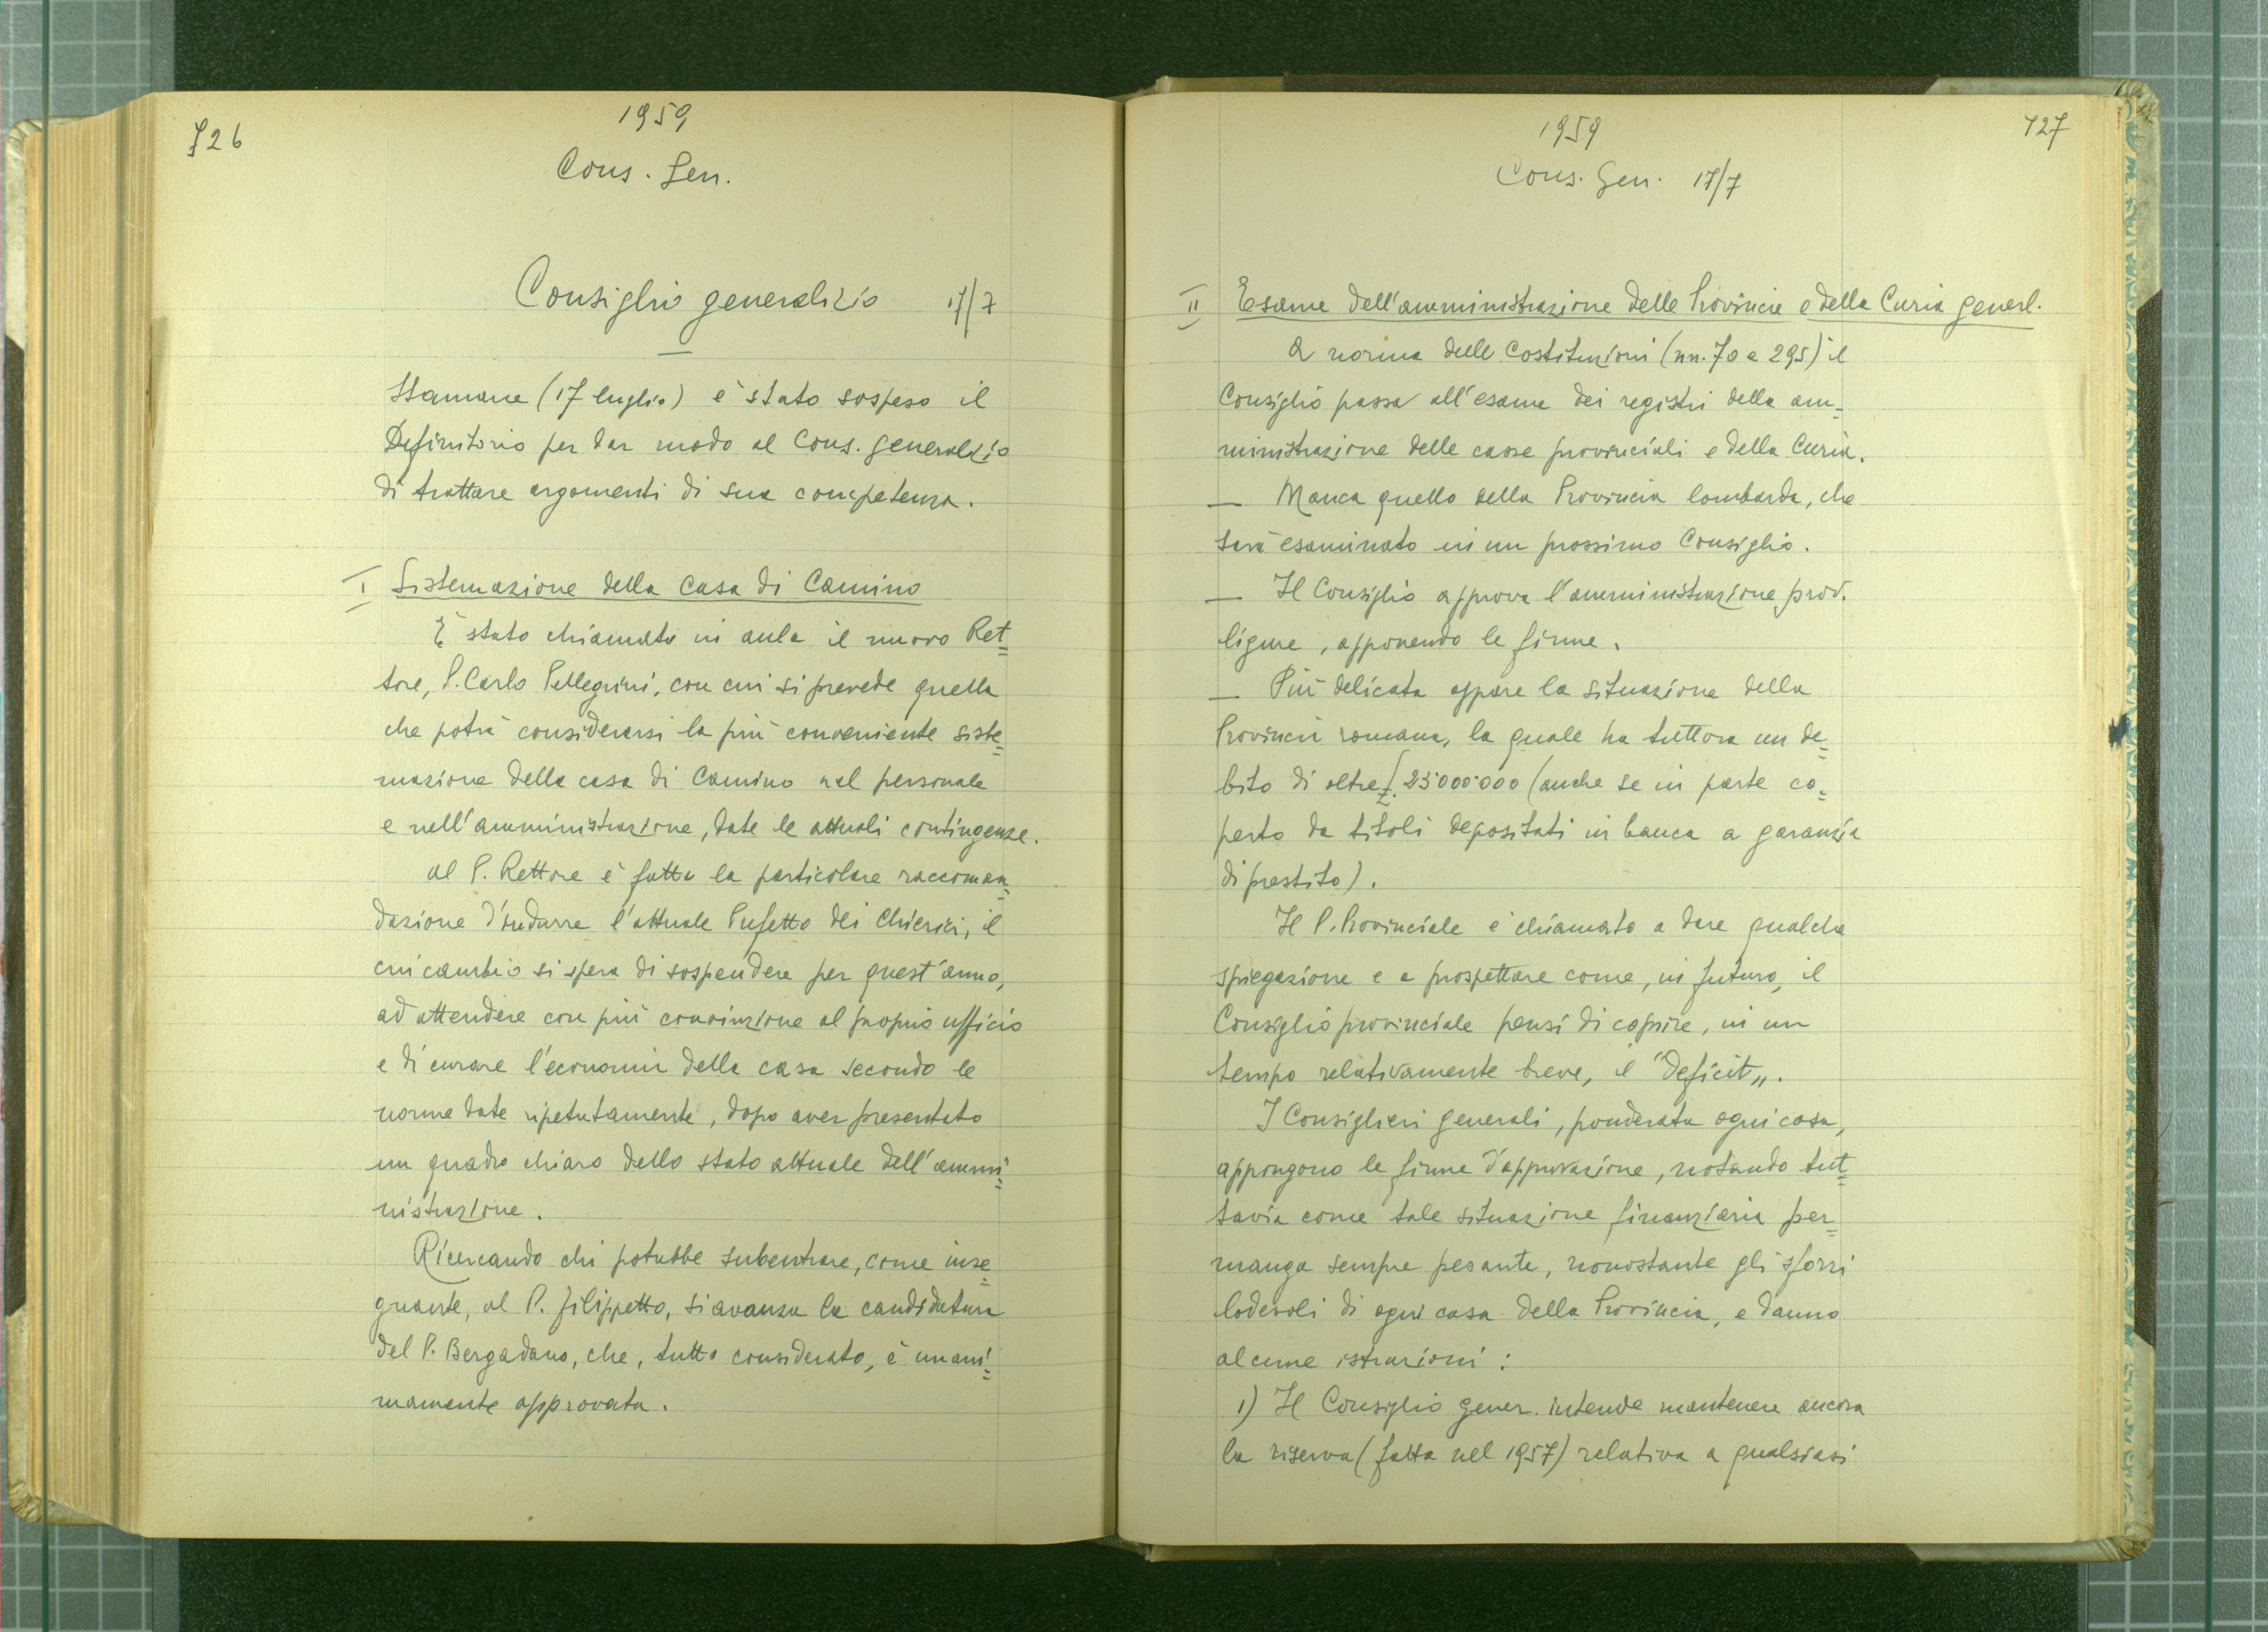 726
1959
Cons. Gen.
Consiglio generalizio 17/7
Stamane (17 luglio) è stato sospeso il
Definitorio per dar modo al Cons. generalizio
di trattare argomenti di sua competenza.
I Sistemazione della Casa di Camino
È stato chiamato in aula il nuovo Ret=
tore, P. Carlo Pellegrini, con cui si prevede quella
che potrà considerarsi la più conveniente siste=
mazione della casa di Camino nel personale
e nell'amministrazione, date le attuali contingenze.
Al P. Rettore è fatta la particolare raccoman=
dazione d'indurre l'attuale Prefetto dei Chierici, il
cui cambio si spera di sospendere per quest'anno,
ad attendere con più convinzione al proprio ufficio
e di curare l'economia della casa secondo le
norme date ripetutamente, dopo aver presentato
un quadro chiaro dello stato attuale dell'ammi=
nistrazione.
Ricercando chi potrebbe subentrare, come inse=
gnante, al P. Filippetto, si avanza la candidatura
del P. Bergadano, che, tutto considerato, è unani=
mamente approvata.
727
1959
Cons. Gen. 17/7
II Esame dell'amministrazione delle Provincie e della Curia generl.
A norma delle Costituzioni (nn. 70 e 295) il
Consiglio passa all'esame dei registri della am=
ministrazione delle casse provinciali e della Curia.
— Manca quello della Provincia lombarda, che
sarà esaminato in un prossimo Consiglio.
— Il Consiglio approva l'amministrazione prov.
ligure, apponendo le firme.
— Più delicata appare la situazione della
Provincia romana, la quale ha tuttora un de=
bito di oltre £. 25.000.000 (anche se in parte co=
perto da titoli depositati in banca a garanzia
di prestito).
Il P. Provinciale è chiamato a dare qualche
spiegazione e a prospettare come, in futuro, il
Consiglio provinciale pensi di coprire, in un
tempo relativamente breve, il "deficit„.
I Consiglieri generali, ponderata ogni cosa,
appongono le firme d'approvazione, notando tut=
tavia come tale situazione finanziaria per=
manga sempre pesante, nonostante gli sforzi
lodevoli di ogni casa della Provincia, e danno
alcune istruzioni:
1) Il Consiglio gener. intende mantenere ancora
la riserva (fatta nel 1957) relativa a qualsiasi